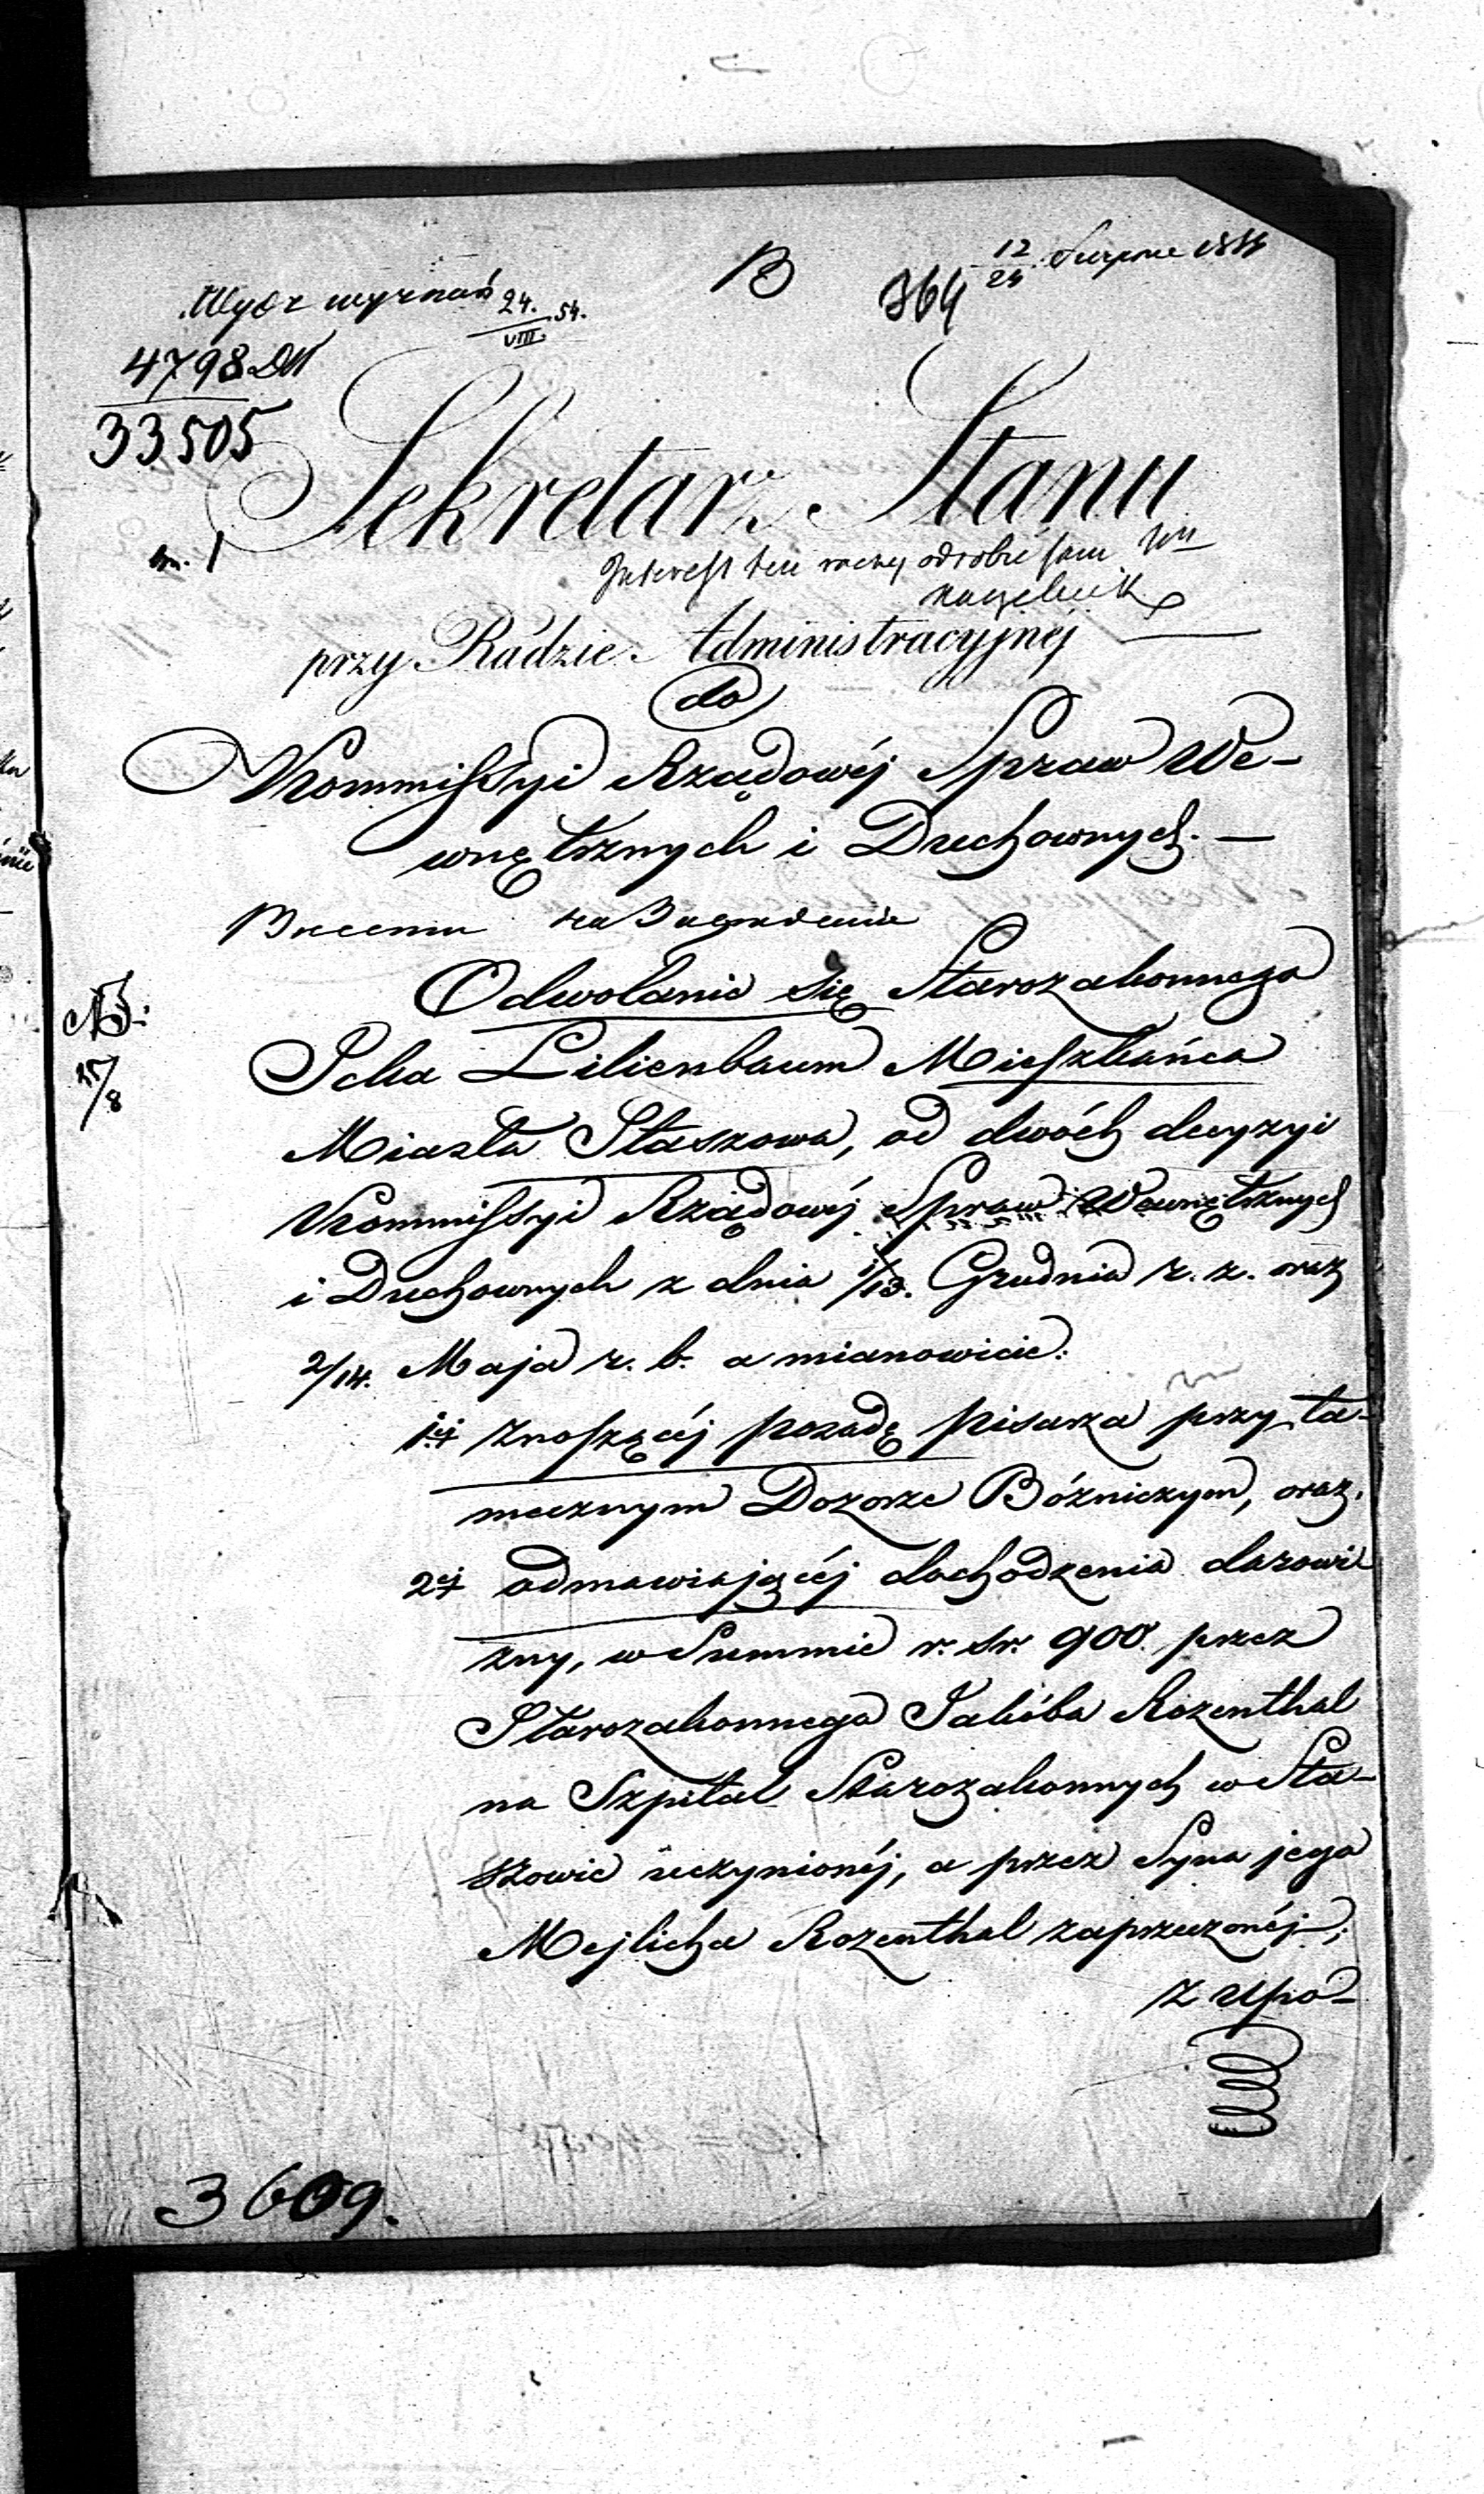 B
364 12/24 Sierpnia 1854
Wydz wyznań 24./VIII. 54.
4798
33505
Sekretarz Stanu
Interest ten raczy odrobić sam
Naczelnik
przy Radzie Administracyjnéj
do
Kommissyi Rządowéj Spraw We-
wnętrznych i Duchownych. —
Odwołanie się Starozakonnego
Icka Lilienbaum Mieszkańca
Miasta Staszowa, od dwóch decyzyi
Kommissyi Rządowéj Spraw Wewnętrznych
i Duchownych z dnia 1/13. Grudnia r. z. oraz
2/14. Maja r. b. a mianowicie:
1éj Znoszącéj posadę Pisarza przy ta-
mecznym Dozorze Bóżniczym, oraz,
2éj odmawiającéj dochodzenia darowi
zny, w Summie r. sr. 900. przez
Starozakonnego Jakóba Rozenthal
na Szpital Starozakonnych w Sta-
szowie uczynionéj, a przez Syna jego
Mejlicha Rozenthal zaprzeczonéj;
z upo-
25/8
3609.